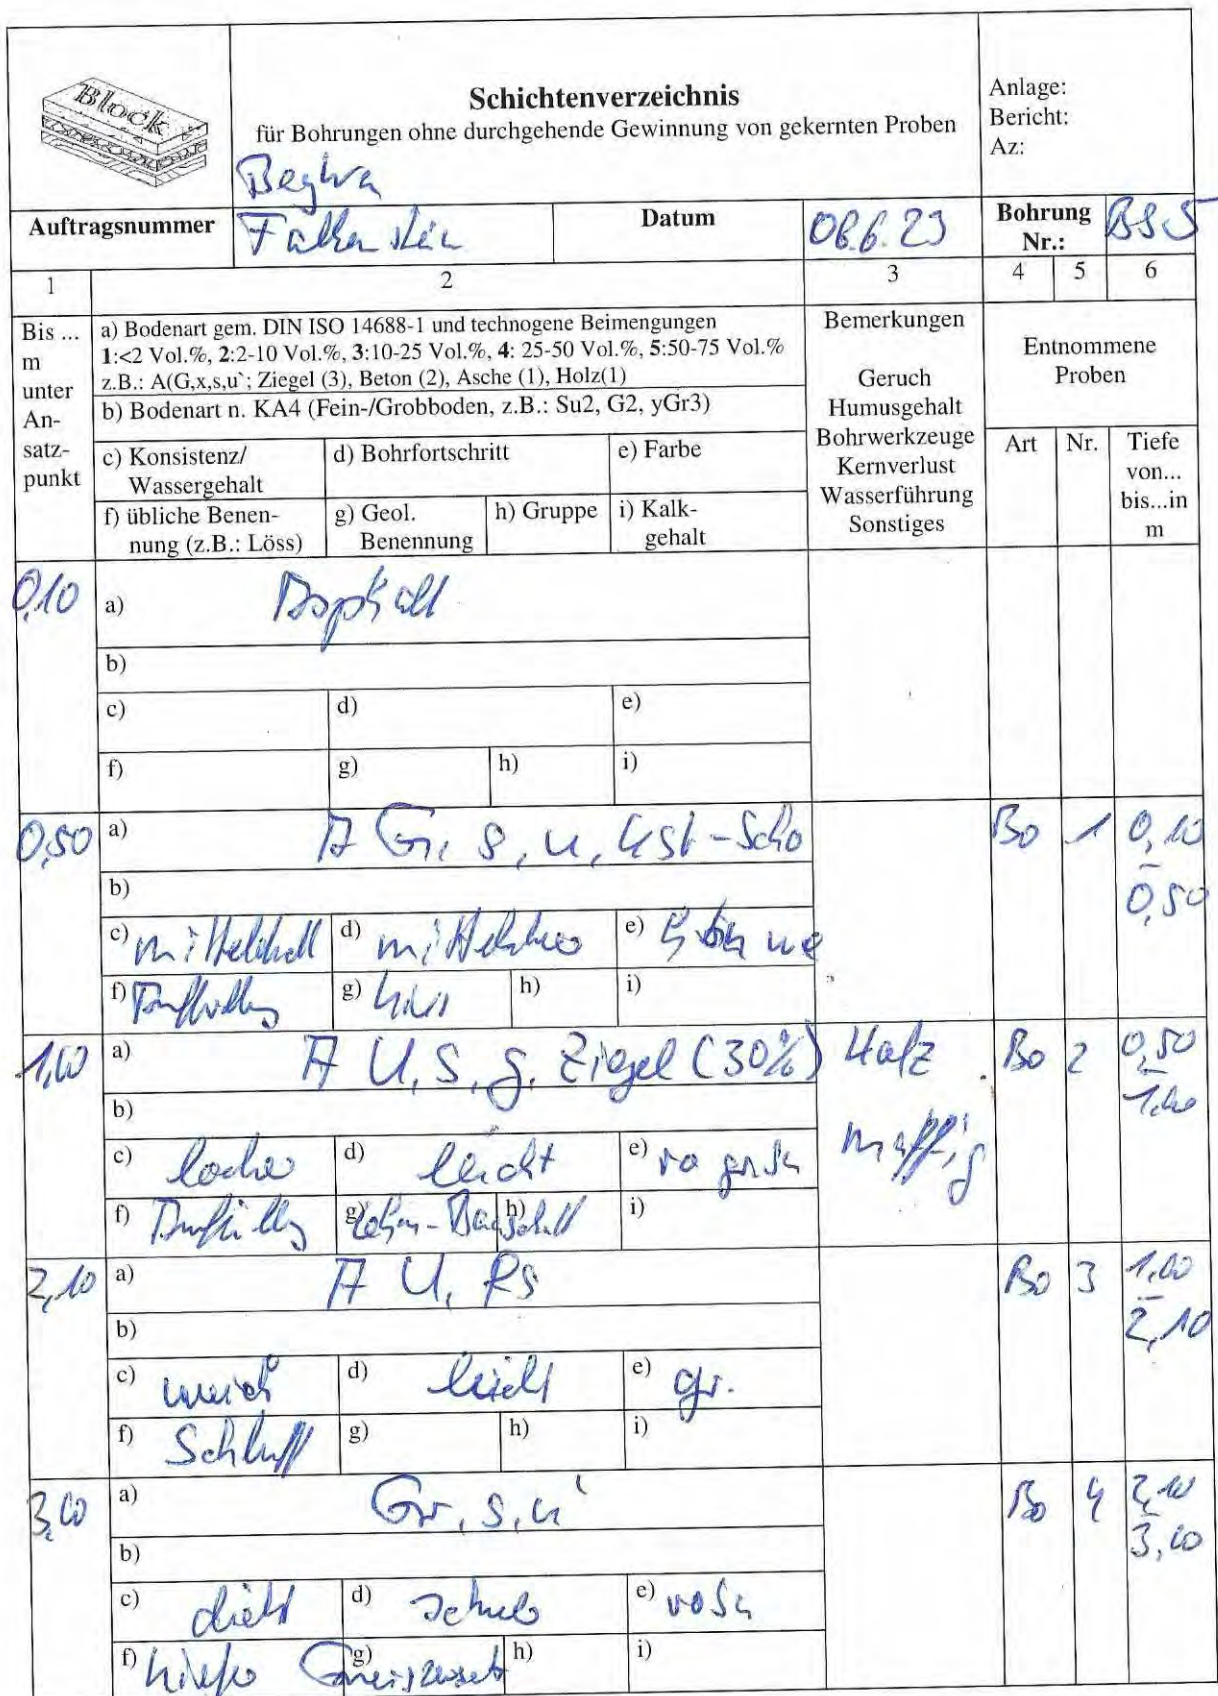 Block
Schichtenverzeichnis
für Bohrungen ohne durchgehende Gewinnung von gekernten Proben
Anlage:
Bericht:
Az:
Auftragsnummer
Falkenstein
Datum
08.6.23
Bohrung
Nr.:
BS5
1
2
3
4
5
6
Bis ...
m
unter
An-
satz-
punkt
a) Bodenart gem. DIN ISO 14688-1 und technogene Beimengungen
1:<2 Vol.%, 2:2-10 Vol.%, 3:10-25 Vol.%, 4: 25-50 Vol.%, 5:50-75 Vol.%
z.B.: A(G,x,s,u`; Ziegel (3), Beton (2), Asche (1), Holz(1)
b) Bodenart n. KA4 (Fein-/Grobboden, z.B.: Su2, G2, yGr3)
c) Konsistenz/
Wassergehalt
d) Bohrfortschritt
e) Farbe
f) übliche Benen-
nung (z.B.: Löss)
g) Geol.
Benennung
h) Gruppe
i) Kalk-
gehalt
Bemerkungen
Geruch
Humusgehalt
Bohrwerkzeuge
Kernverlust
Wasserführung
Sonstiges
Entnommene
Proben
Art
Nr.
Tiefe
von...
bis...in
m
0,10
a) Asphalt
b)
c)
d)
e)
f)
g)
h)
i)
0,50
a) A Gr, s, u, Kst-Scho
Bo
1
0,10
-
0,50
b)
c)
d)
e)
f) Auffüllg
g) Kies
h)
i)
1,00
a) A U, s, g, Ziegel (30%)
Holz
muffig
Bo
2
0,50
-
1,00
b)
c) locker
d) leicht
e)
f) Auffüllg
g) Lehm-Bauschutt
h)
i)
2,10
a) A U, fs
Bo
3
1,00
-
2,10
b)
c) weich
d) leicht
e) gr.
f) Schluff
g)
h)
i)
3,00
a) Gr, s, u'
Bo
4
2,10
-
3,00
b)
c) dicht
d) schwer
e)
f) Gneiszersatz
g)
h)
i)